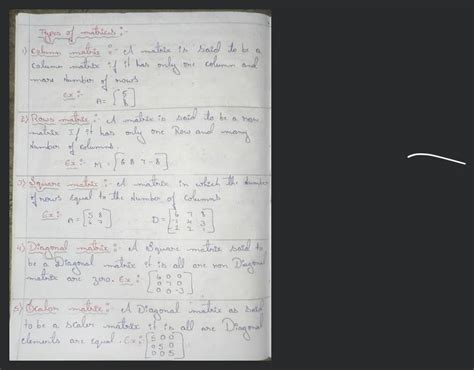 Types of matrices :-
1) Column matrix :- A matrix is said to be a
column matrix if it has only one column and
more number of rows
Ex :- A = [5
8]
2) Rows matrix :- A matrix is said to be a row
matrix If it has only one Row and many
number of columns
Ex :- M = [6 8 7 -8]
3) Square matrix :- A matrix in which the number
of rows equal to the number of columns
Ex :- A = [5 8
6 7] D =
4) Diagonal matrix :- A Square matrix said to
be a Diagonal matrix it is all are non Diagonal
matrix are zero. Ex : [6 0 0
0 7 0
0 0 -3]
5) Scalar matrix :- A Diagonal matrix as said
to be a scaler matrix it is all are Diagonal
elements are equal. Ex : [5 0 0
0 5 0
0 0 5]